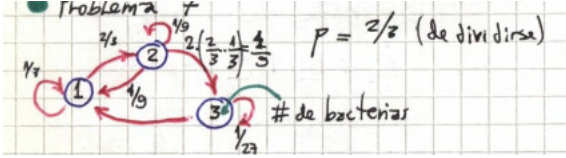 Problema 7
P = 2/3 (de dividirse)
2/3
4/9
2·(2/3 · 1/3) = 4/9
2
1
4/9
3
# de bacterias
1/27